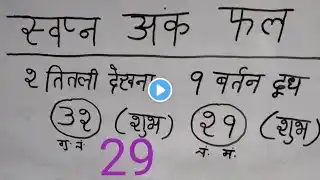 स्वप्न अंक फल
२ तितली देखना १ बर्तन दूध
३२ (शुभ) २१ (शुभ)
29